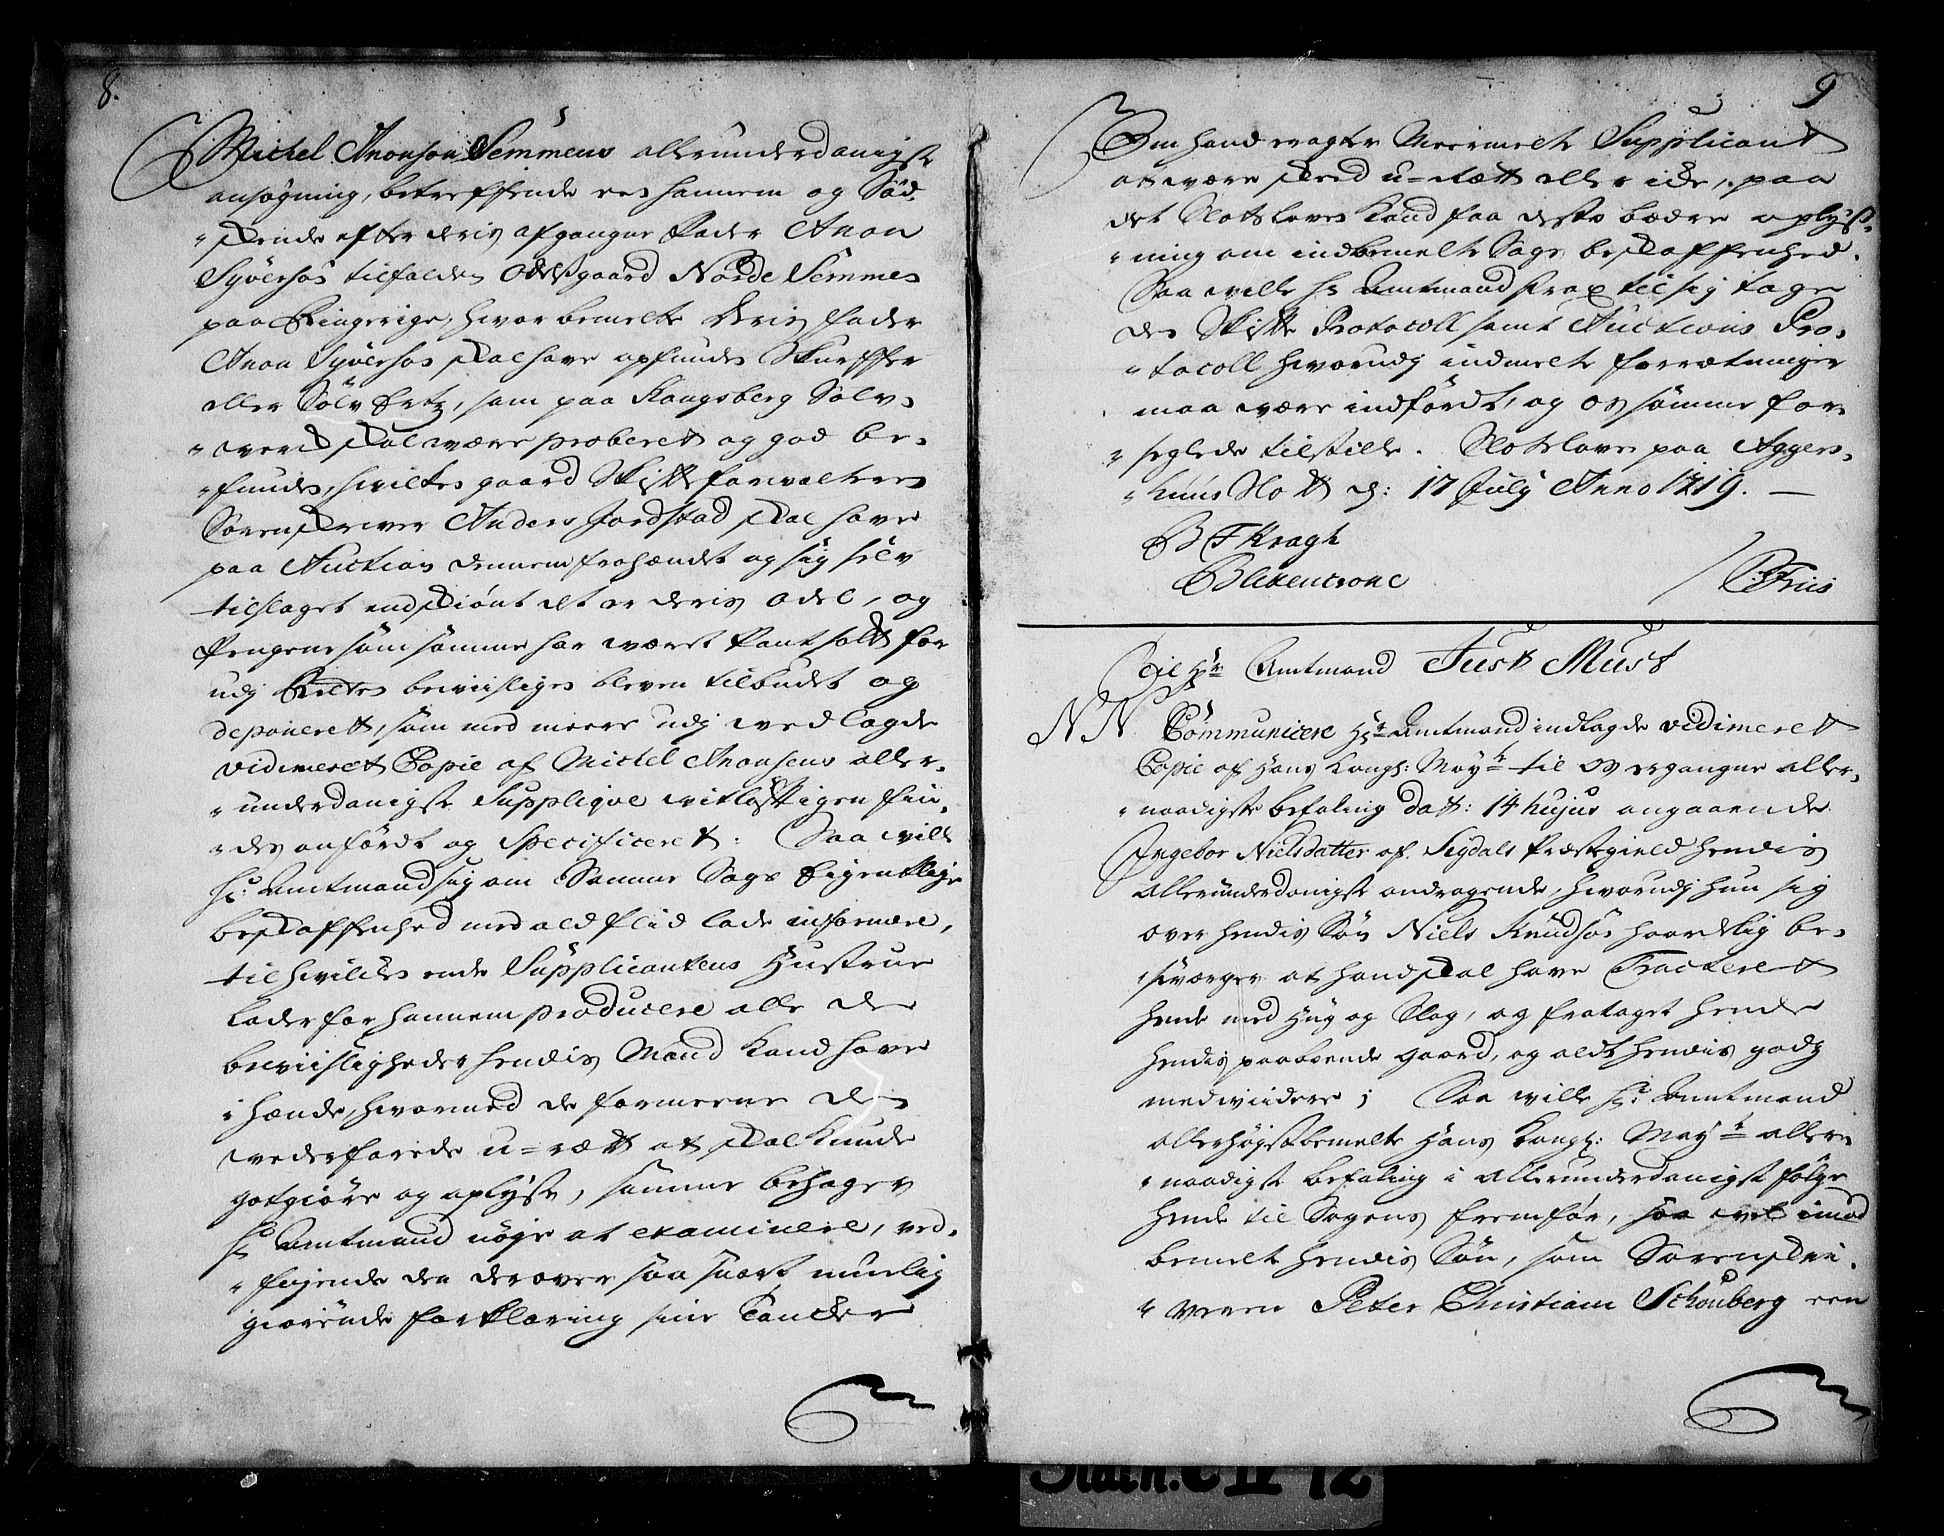 8.
Michel Anonsøn Semmens allerunderdanigste
ansøgning, betreffende een hannem og Sød-
skende efter deris afgangne Fader Anon
Syversøs tilfalden Odelsgaard Nordre Semmen
paa Ringerige, hvor bemelte deris fader
Anon Syversøs skal have opfunden Skurffer
eller Sølv Ertz, som paa Kongsberg Sølv-
verck skal være proberet og god be-
funden, hvilken gaard Skifteforvalteren
Sorenskriver Anders Jordstad skal have
paa Auction dennem frahændet og sig selv
tilslaget endskiønt det er deris odel, og
Pengene som samme har været Pantsatt for
udj Rettes beviisligen bleven tilbudet og
deponerett, som med meere udj vedlagde
vidimeret Copie af Michel Anonsens aller-
underdanigste Supplique vitløftigen fin-
des anfördt og Specificeret: Saa ville
Hr. Amtmand sig om Samme Sags Eigentlige
beskaffenhed med ald fliid lade informere,
til hvilcken ende Supplicantens Hustrue
lader for hannem producere alle de
beviisligheder hendis Mand kand have
i hænde, hvormed de formeene den
vederfarede u-rætt at skal kunde
gotgiöre og oplyse, samme behager
Hr. Amtmand nöye at examinere, ved-
föyende den derover saa snart muelig
giörende forklaring sine Tancker
9
Om hand eragter Meermelte Supplicant
at være skeed u-rætt eller icke, paa
det Slotsloven kand faa desto bædre oplys-
ning om indbemelte Sags beskaffenhed.
Saa ville Hr. Amtmand strax til sig tage
den Skifte Protocoll samt Auctions Pro-
tocoll hvorudj indmelte forrætninger
maa være indfördt, og os samme for-
seglede tilstille. Slotsloven paa Aggers-
huus Slott d: 17 July Anno 1719. —
B F Kragh
Blixencrone
C Friis
Til Hr. Amtmand Just Must
NN. Communicere Hr. Amtmand indlagde vidimeret
Copie af Hans Kongl: May.t til os ergangne aller-
naadigste befaling dat: 14 hujus angaaende
Ingebor Nielsdatter af Sigdals Præstegield hendis
allerunderdanigste andragende, hvorudj hun sig
over hendis Søn Niels Knudsøs haardelig be-
sværger at hand skal have Tracteret
hende med Hug og Slag, og frataget hende
hendis paaboende gaard, og aldt hendis godz
med viidere; Saa ville Hr. Amtmand
allerhøystbemelte Hans Kongl: May.t aller-
naadigste befaling i allerunderdanigst følge
hende til Sagens fremfør, saa vel imod
bemelt hendis Søn, som Sorenskri-
veren Peter Christian Schouberg een
Stath. C II 12